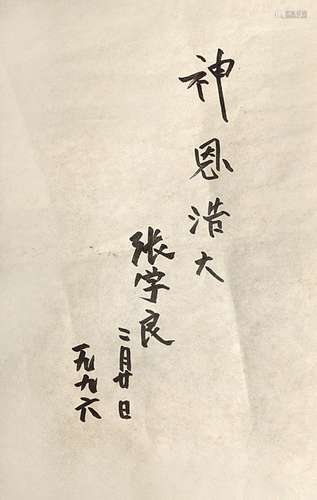 神恩浩大
张字良
二月廿日
一九九六